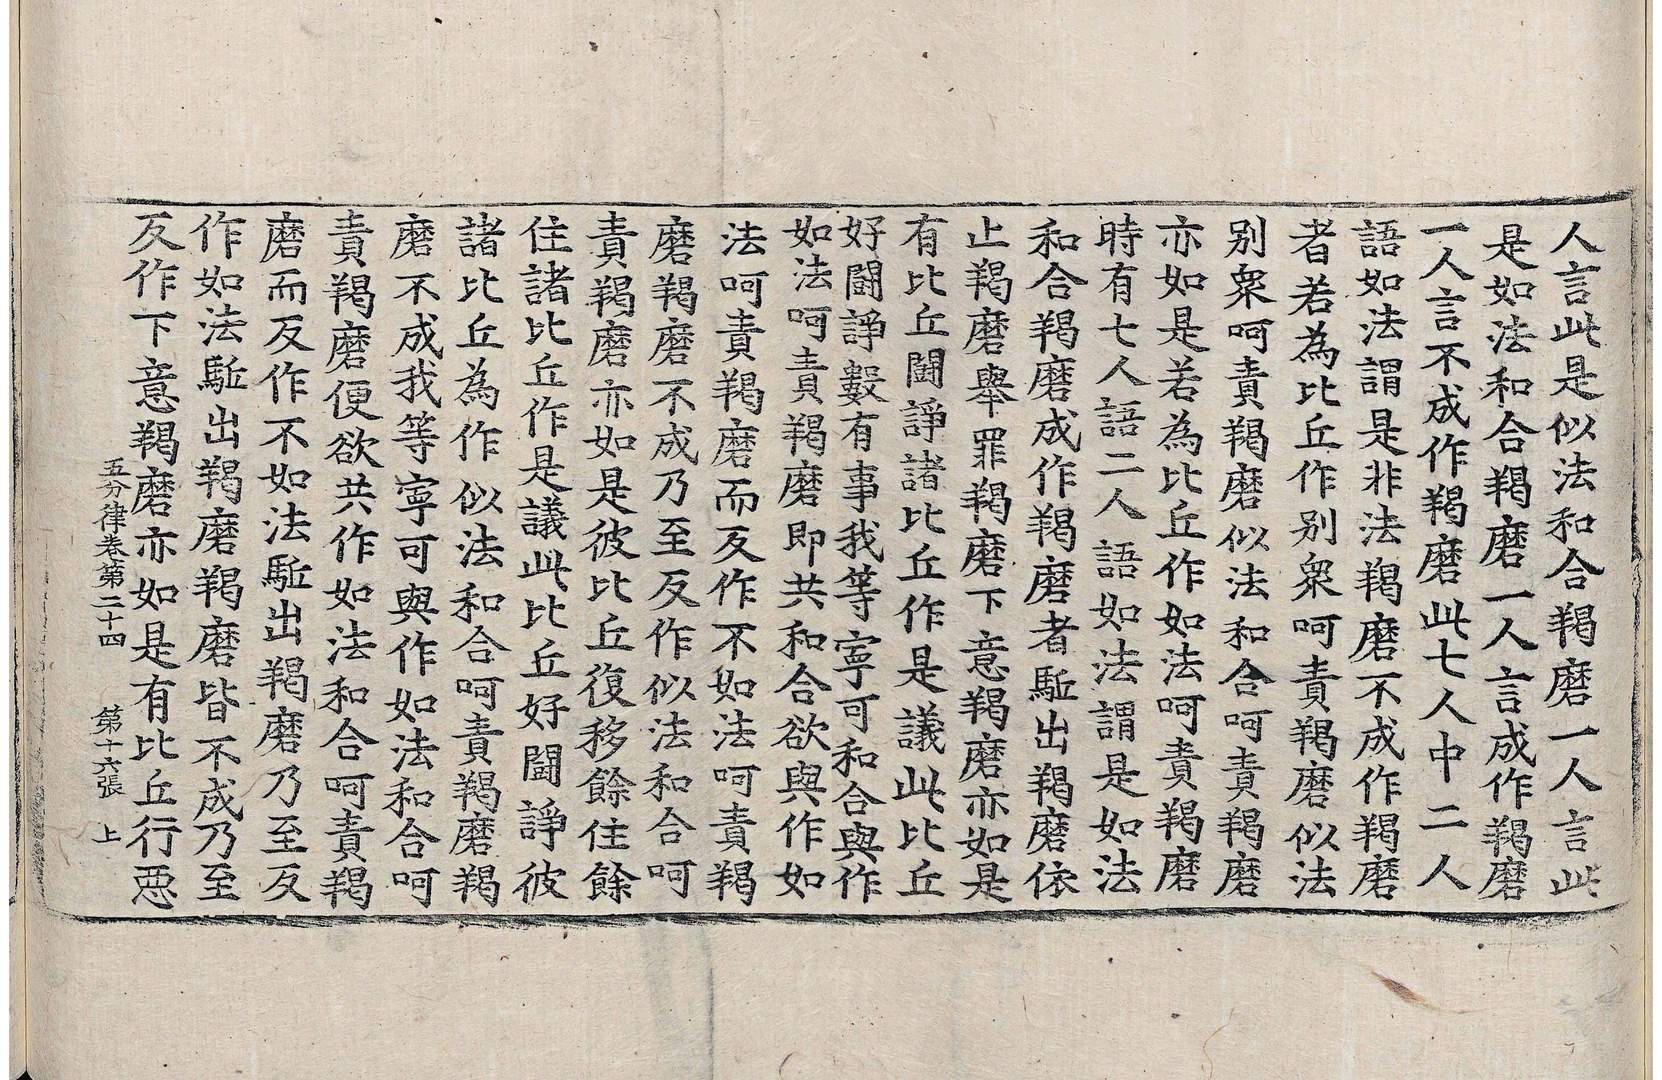 人言此是似法和合羯磨一人言此
是如法和合羯磨一人言成作羯磨
一人言不成作羯磨此七人中二人
語如法謂是非法羯磨不成作羯磨
者若為比丘作別衆呵責羯磨似法
別衆呵責羯磨似法和合呵責羯磨
亦如是若為比丘作如法呵責羯磨
時有七人語二人語如法謂是如法
和合羯磨成作羯磨者駈出羯磨依
止羯磨舉罪羯磨下意羯磨亦如是
有比丘鬪諍諸比丘作是議此比丘
好鬪諍數有事我等寧可和合與作
如法呵責羯磨即共和合欲與作如
法呵責羯磨而反作不如法呵責羯
磨羯磨不成乃至反作似法和合呵
責羯磨亦如是彼比丘復移餘住餘
住諸比丘作是議此比丘好鬪諍彼
諸比丘為作似法和合呵責羯磨羯
磨不成我等寧可與作如法和合呵
責羯磨便欲共作如法和合呵責羯
磨而反作不如法駈出羯磨乃至反
作如法駈出羯磨羯磨皆不成乃至
反作下意羯磨亦如是有比丘行惡
五分律卷第二十四 第十六張 上